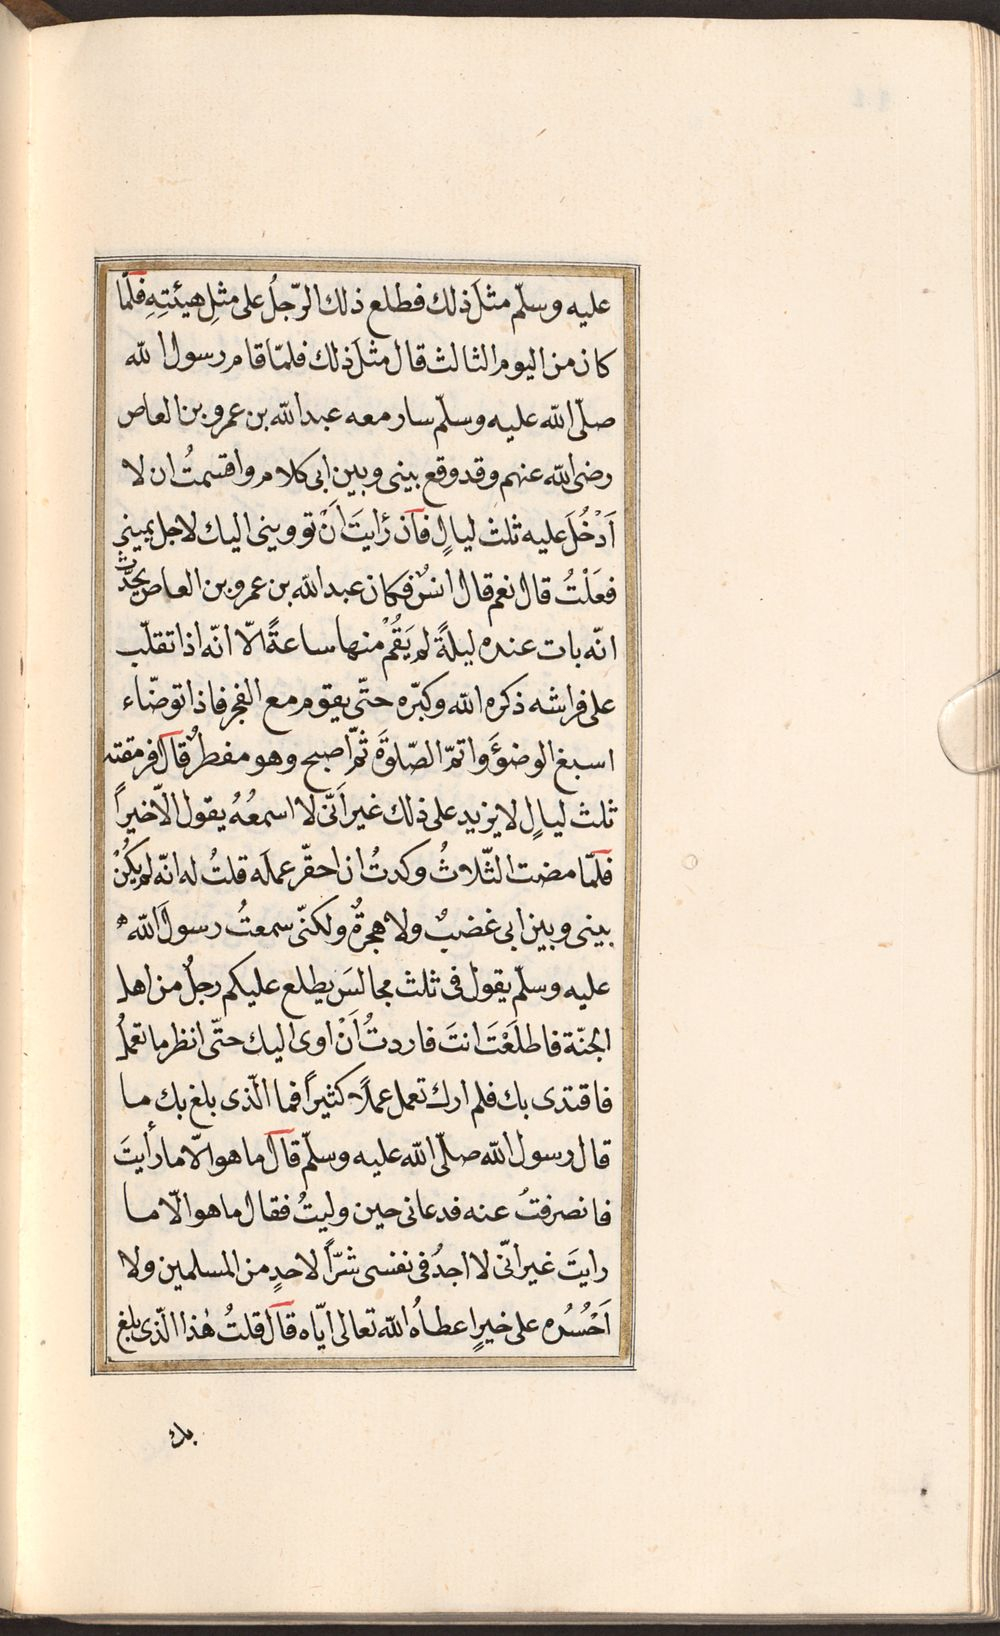 عليه وسلّم مثلَ ذلك فطلع ذلك الرّجلُ على مثلِ هيئتِهِ فلمّا
كان من اليوم الثالث قال مثلَ ذلك فلمّا قام رسول الله
صلّى الله عليه وسلّم سار معه عبد الله بن عمرو بن العاص
رضى الله عنهم وقد وقع بينى وبين ابى كلام واقسمتُ ان لا
اَدْخُلَ عليه ثلث ليالٍ فان رُايتَ اَنْ تووينى اليك لاجل يمينى
فعَلْتُ قال نعم قال انسٌ فكان عبد الله بن عمرو بن العاص يحدّث
انّه بات عنده ليلةً لم يَقُمْ منها ساعةً الّا انّه اذا تقلّب
على فراشه ذكره الله وكبّره حتّى يقوم مع الفجر فاذا توضّاء
اسبغ الوضؤَ واتمّ الصّلوةَ ثمّ اصبح وهو مفطرٌ قال فرمقته
ثلث ليالٍ لا يزيد على ذلك غير اَنّى لا اسمعُهُ يقول الّا خيراً
فلمّا مضت الثّلاثُ وكدتُ ان احقّر عملَه قلتُ له انّه لم يكُنْ
بينى وبين ابى غضبٌ ولا هجرةٌ ولكنّى سمعتُ رسولَ الله
عليه وسلّم يقول فى ثلث مجالسَ يطلع عليكم رجلٌ من اهل
الجنّة فاطلَعْتَ انتَ فاردتُ اَنْ اوى اليك حتّى انظر ما تعملُ
فاقتدى بك فلم ارك تعمل عملًا كثيراً فما الّذى بلغ بك ما
قال رسول الله صلّى الله عليه وسلّم قال ما هو الّا ما رأيتَ
فانصرفتُ عنه فدعانى حين وليتُ فقال ما هو الّا ما
رايتَ غير انّى لا اجدُ فى نفسى شرّاً لاحدٍ من المسلمين ولا
اَحْسُدُه على خيرٍ اعطاهُ الله تعالى ايّاه قال قلتُ هٰذا الّذى بلغ
بك